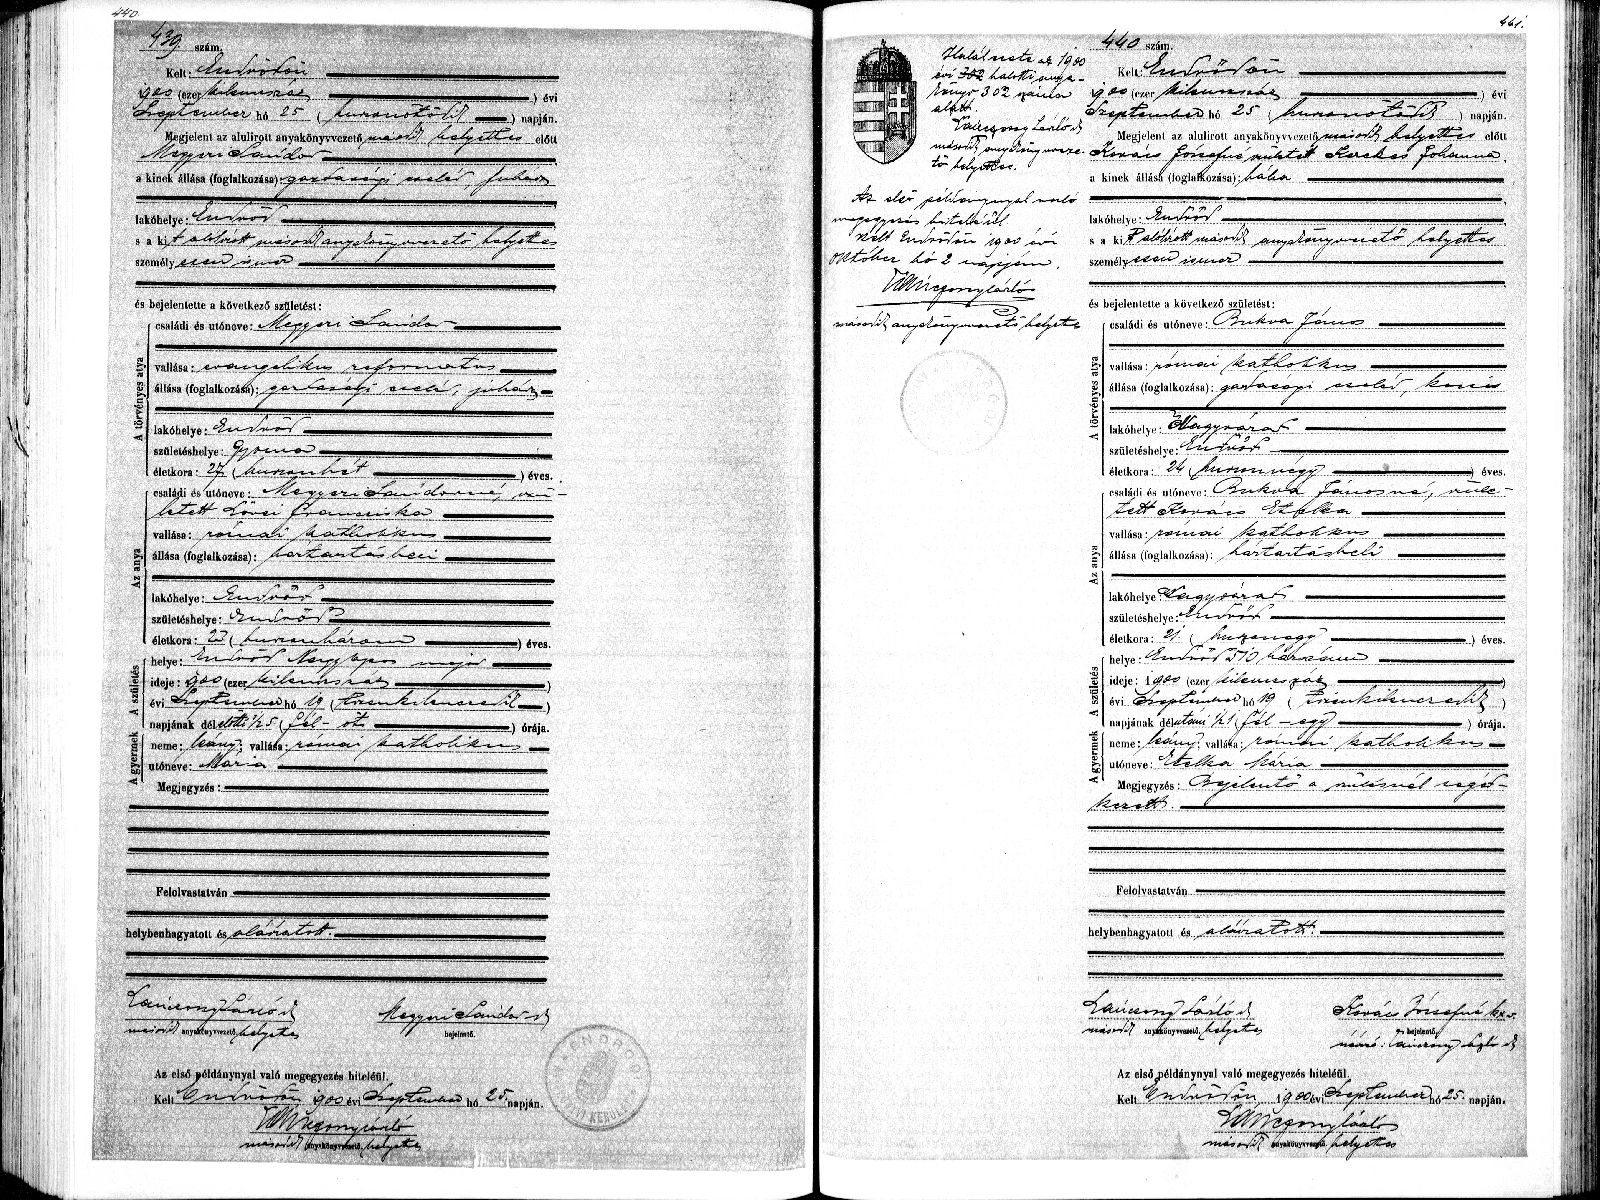 440
439. szám.
Kelt: Endrődön
900 (ezer kilencszáz ) évi
Szeptember hó 25 ( huszonötödik ) napján.
Megjelent az alulirott anyakönyvvezető második helyettes előtt
Megyeri Sándor
a kinek állása (foglalkozása): gazdasági cseléd, juhász
lakóhelye: Endrőd
s a kit alólirott második anyakönyvvezető helyettes
személyesen ismer
és bejelentette a következő születést:
A törvényes atya
családi és utóneve: Megyeri Sándor
vallása: evangelikus reformatus
állása (foglalkozása): gazdasági cseléd, juhász
lakóhelye: Endrőd
születéshelye: Gyoma
életkora: 27 ( huszonhét ) éves.
Az anya
családi és utóneve: Megyeri Sándorné, szü-
letett Franciska
vallása: római katholikus
állása (foglalkozása): háztartásbeli
lakóhelye: Endrőd
születéshelye: Endrőd
életkora: 23 ( huszonhárom ) éves.
A születés
helye: Endrőd major
ideje: 900 (ezer kilencszáz )
évi Szeptember hó 19 ( tizenkilencedik )
napjának délelőtti 1/2 5 ( fél - öt ) órája.
A gyermek
neme: leány; vallása: római katholikus
utóneve: Mária
Megjegyzés:
Felolvastatván
helybenhagyatott és aláíratott.
Lánczony László s k
második anyakönyvvezető, helyettes
Megyeri Sándor s k
bejelentő.
Az első példánynyal való megegyezés hiteléül.
Kelt Endrődön 900 évi Szeptember hó 25 napján.
Lánczony László
második anyakönyvvezető, helyettes
441.
Halálesete az 1900
évi 302 halotti anya-
könyv 302 száma
alatt.
Lánczony László s k
második anyakönyvveze-
tő helyettes.
Az első példánynyal való
megegyezés hiteléül
Kelt Endrődön 1900 évi
Október hó 2 napján.
Lánczony László
második anyakönyvvezető helyettes
440 szám.
Kelt: Endrődön
900 (ezer kilencszáz ) évi
Szeptember hó 25 ( huszonötödik ) napján.
Megjelent az alulirott anyakönyvvezető második helyettes előtt
Kovács Józsefné született Kerekes Johanna,
a kinek állása (foglalkozása): bába
lakóhelye: Endrőd
s a kit alólirott második anyakönyvvezető helyettes
személyesen ismer
és bejelentette a következő születést:
A törvényes atya
családi és utóneve: Bukva János
vallása: római katholikus
állása (foglalkozása): gazdasági cseléd, kocsis
lakóhelye: Nagyvárad
születéshelye: Endrőd
életkora: 24 ( huszonnégy ) éves.
Az anya
családi és utóneve: Bukva Jánosné, szüle-
tett Kovács Etelka
vallása: római katholikus
állása (foglalkozása): háztartásbeli
lakóhelye: Nagyvárad
születéshelye: Endrőd
életkora: 21. ( huszonegy ) éves.
A születés
helye: Endrőd 510 házszám
ideje: 1900 (ezer kilencszáz )
évi Szeptember hó 19 ( tizenkilencedik )
napjának délutáni 1/2 1 ( fél - egy ) órája.
A gyermek
neme: leány; vallása: római katholikus
utóneve: Etelka Mária
Megjegyzés: Bejelentő a szülésnél segéd-
kezett.
Felolvastatván
helybenhagyatott és aláíratott.
Lánczony László s k
második anyakönyvvezető, helyettes
Kovács Józsefné
bejelentő.
névíró: Lánczony László s k
Az első példánynyal való megegyezés hiteléül.
Kelt Endrődön, 1900 évi Szeptember hó 25. napján.
Lánczony László
második anyakönyvvezető, helyettes